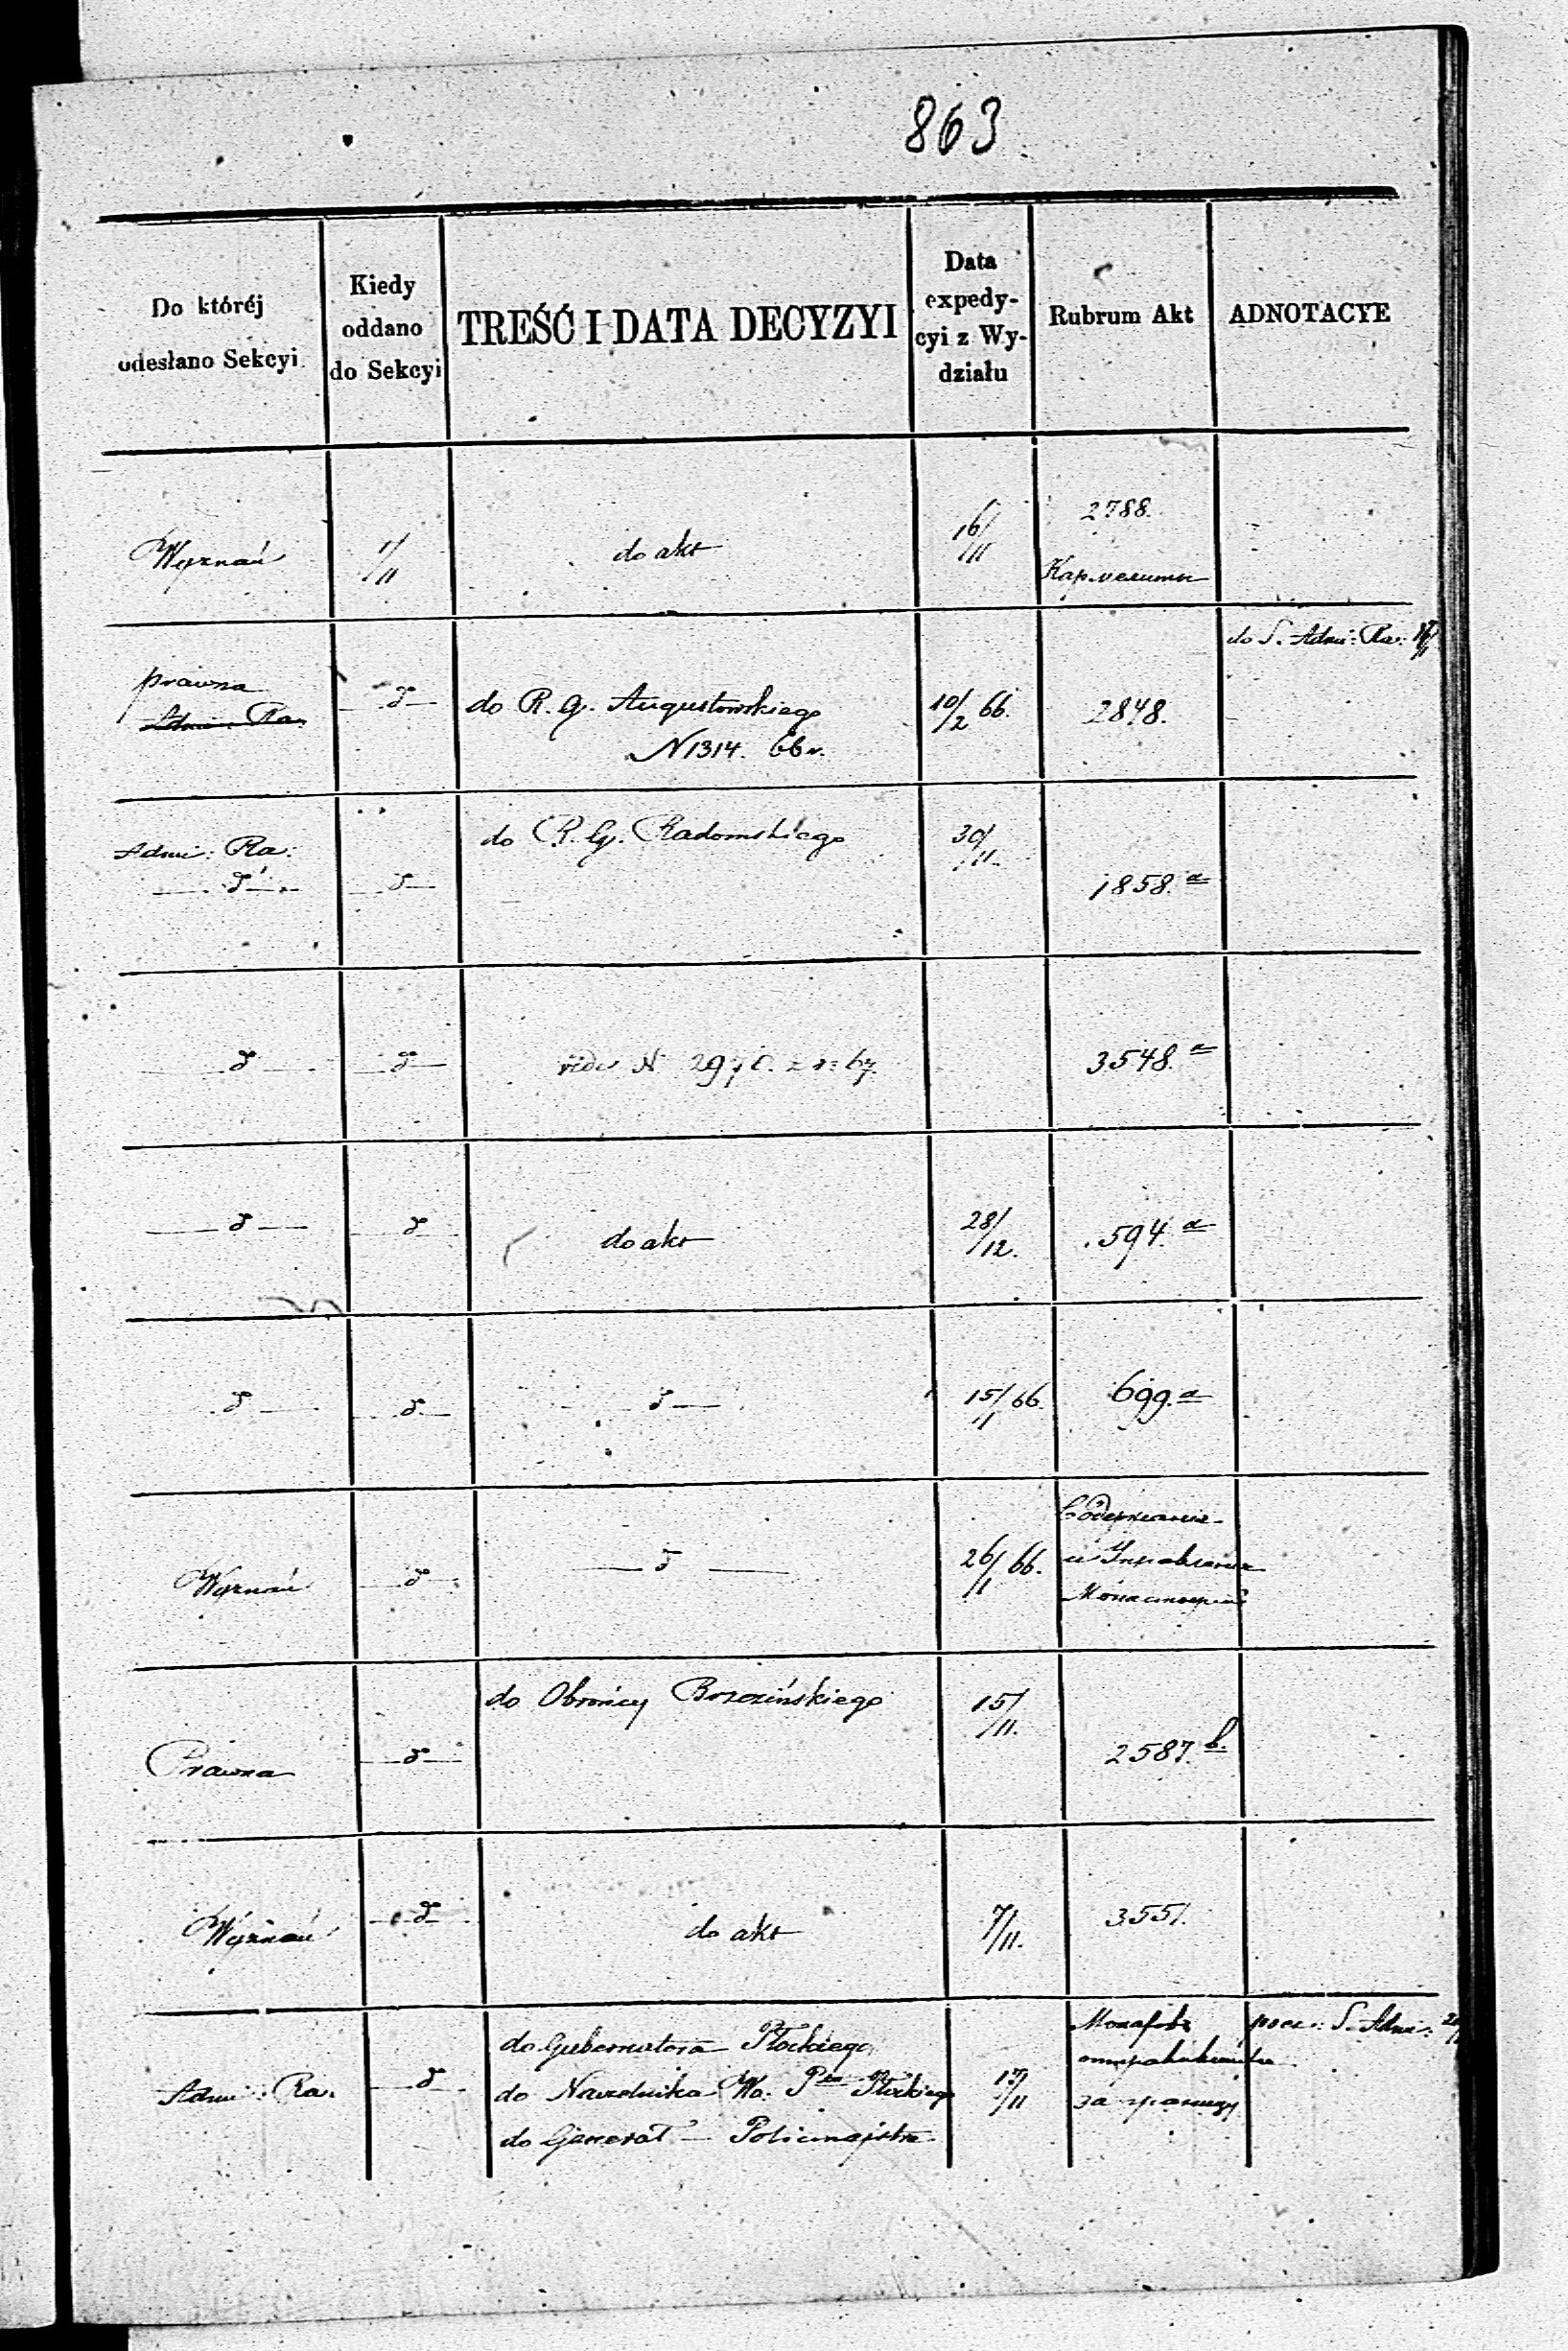 863
Do któréj
odesłano Sekcyi
Kiedy
oddano
do Sekcyi
TREŚĆ I DATA DECYZYI
Data
expedy-
cyi z Wy-
działu
Rubrum Akt
ADNOTACYE
Wyznań
1/11
do akt
16/11
2788.
Кармелиты
prawna
Adm: Ra.
d
do R. G. Augustowskiego
N 1314. 66 r.
10/2 66.
2848.
do S. Adm: Ra:
Adm: Ra:
d
d
do R. G. Radomskiego
30/11
1858. a
d
d
vide N
3548. a
d
d
do akt
28/12.
594. a
d
d
d
15/1 66
699. a
Wyznań
d
d
26/1 66.
Содержание
и Управление
Монастырей
Prawna
d
do Obrońcy Brzezińskiego
15/11.
2587. b.
Wyznań
d
do akt
7/11.
3551.
Adm: Ra.
d
do Gubernatora Płockiego
do Naczelnika Wo. Płockiego
do Generał Policmajstra
17/11
за границу
S. Adm: